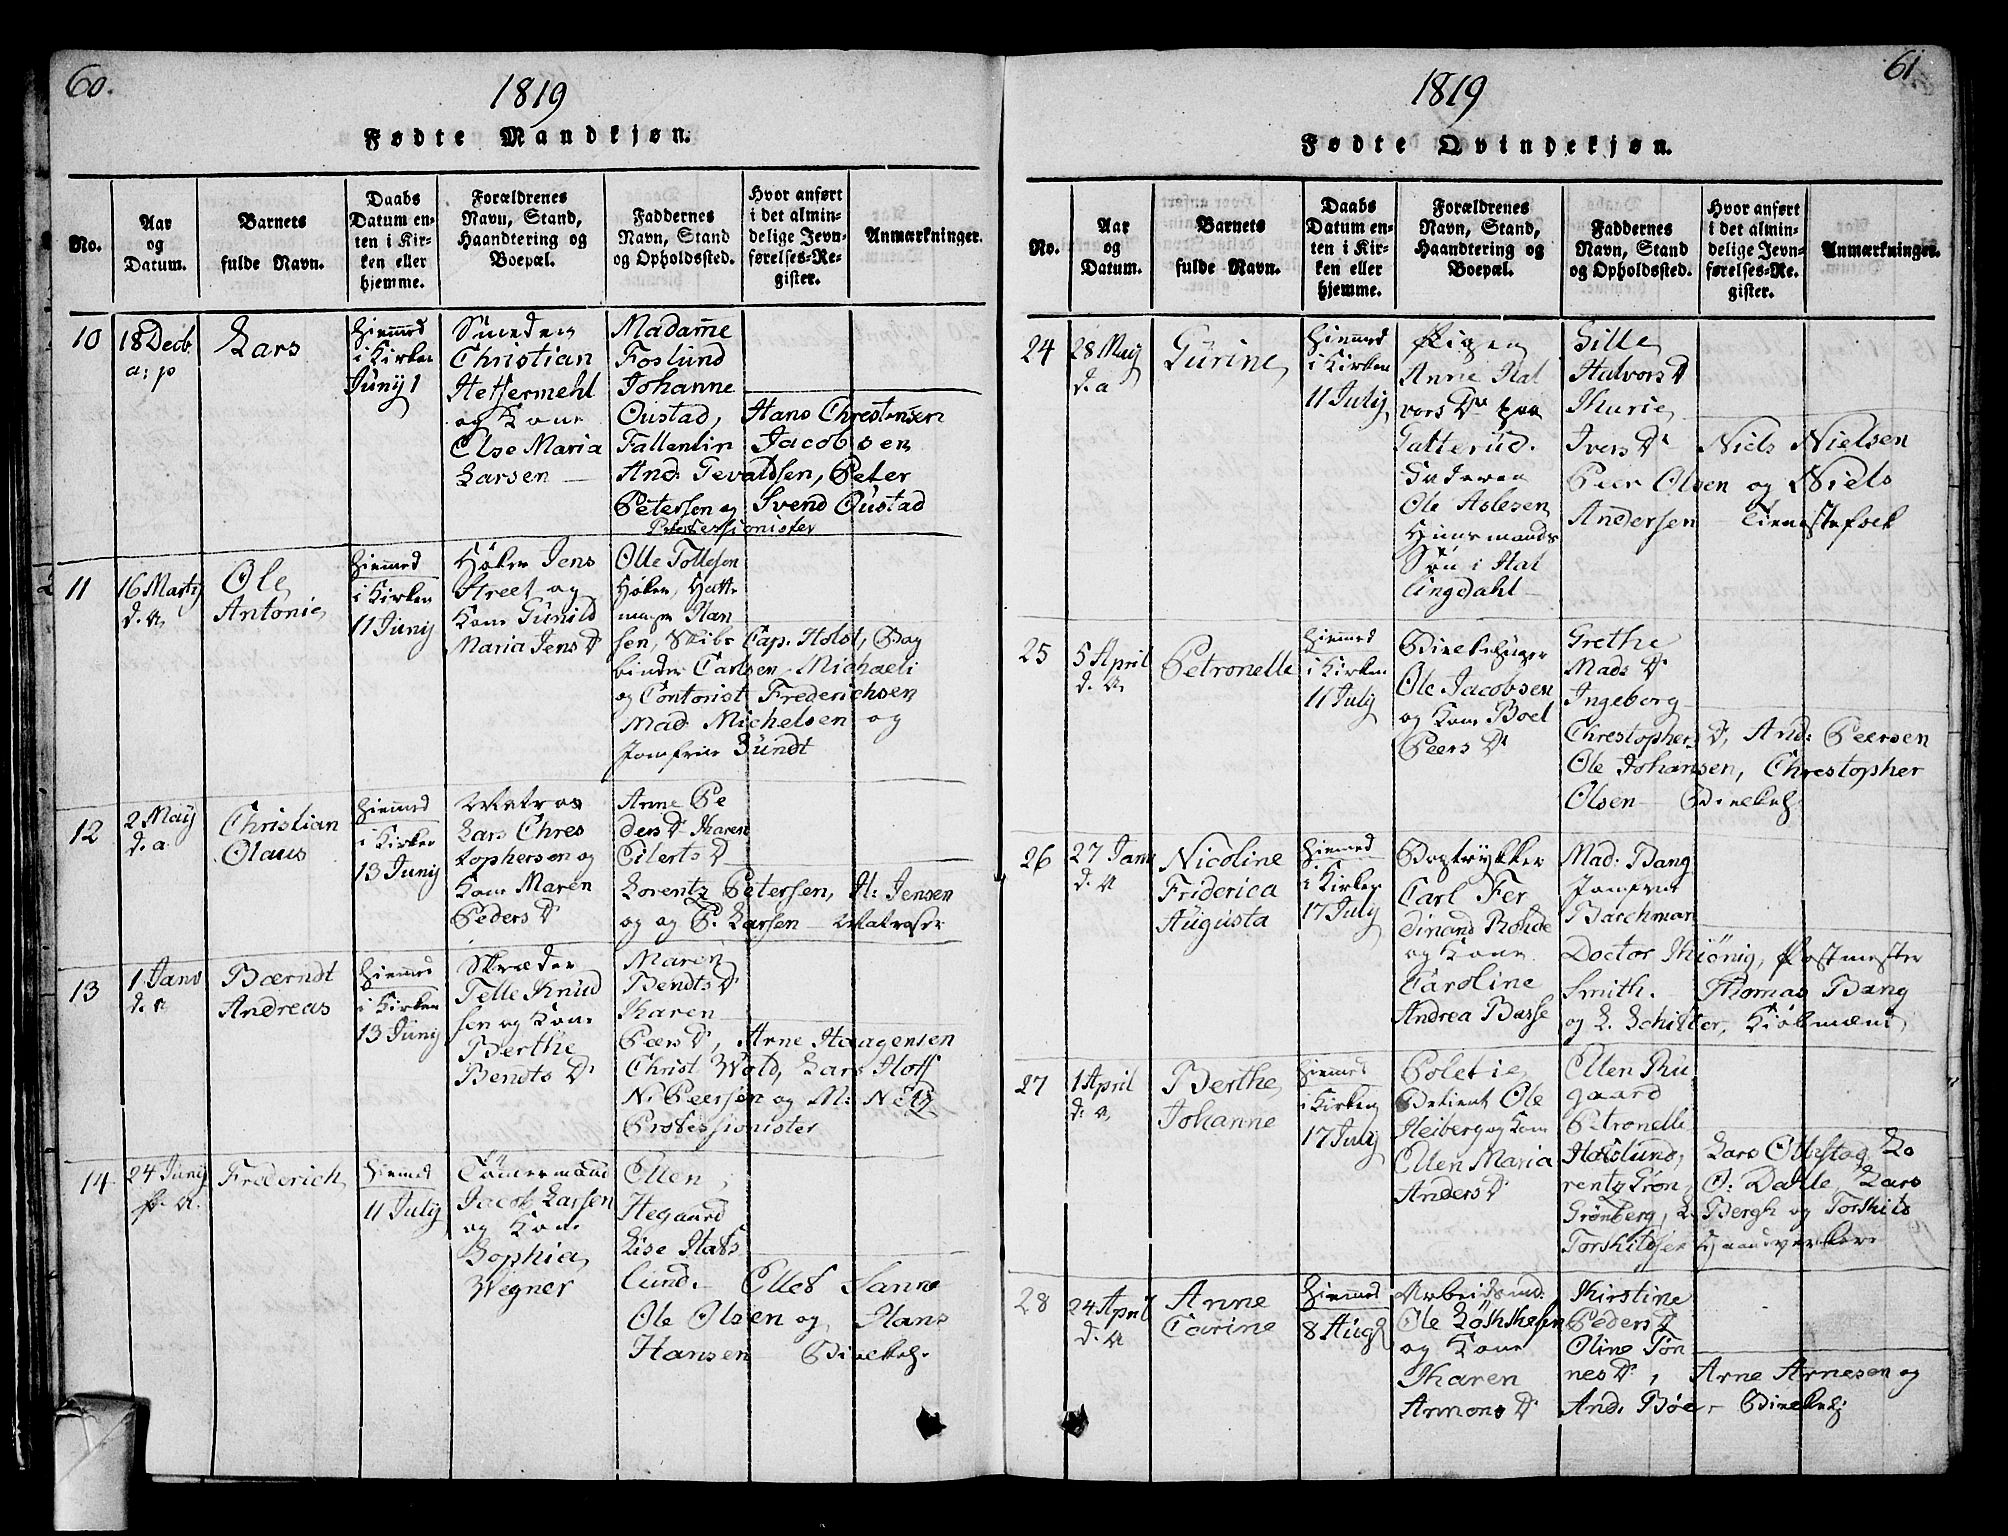 60.
1819
Fødte Mandkjøn.
No.
Aar
og
Datum.
Barnets
fulde Navn.
Daabs
Datum en-
ten i Kir-
ken eller
hjemme.
Forældrenes
Navn, Stand,
Haandtering og
Boepæl.
Faddernes
Navn, Stand
og Opholdssted.
Hvor anført
i det almin-
delige Jevn-
førelses-Re-
gister.
Anmærkninger.
10
18 Decb.
a: p
Lars
Hiemmed
i Kirken
Juny 1
Smeden
Christian
Heffermehl
og Kone
Else Maria
Larsen
Madamme
Foslund
Johanne
Oustad, Hans Chrestensen
Fallentin Jacobsen
And: Gevaldsen, Peter
Petersen og Svend Oustad
Professionister
11
16 Martij
d. a.
Ole
Antonie
Hiemmed
i Kirken
11 Junij
Høker Jens
Street og
Kone Gunild
Maria Jens D
Olle Tollesen
Høker, Hatt-
mager Han
sen, Skibs Cap. Holst, Bog
binder Carlsen Michaeli
og Contorist Frederichsen
Mad Michelsen og
Jomfrue Bundt
12
2 Maij
d. a
Christian
Olaus
Hiemmed
i Kirken
13 Junij
Matros
Lars Chres
tophersen og
Kone Maren
Peders D
Anne Pe
ders D Karen
Eilerts D
Lorentz Petersen, H: Jensen
og og P. Larsen Matroser
13
1 Janv
d. a
Bærndt
Andreas
Hiemmed
i Kirken
13 Junij
Skræder
Telle Knud
sen og Kone
Berthe
Bendts D
Maren
Bendts D
Karen
Pærs D, Arne Haagensen
Christ Wold, Lars Hoff
N. Peersen og M: Netz
Professionister
14
24 Junij
Frederich
Hiemed
11 Julij
Tømermand
Jacob Larsen
og Kone
Sophia
Wegner
Ellen
Hegaard
Lise Hafs
lund. Ellef Sanne
Ole Olsen og Hans
Hansen
61
1819
Fødte Qvindekjøn.
No.
Aar
og
Datum.
Barnets
fulde Navn.
Daabs
Datum en-
ten i Kir-
ken eller
hjemme.
Forældrenes
Navn, Stand,
Haandtering og
Boepæl.
Faddernes
Navn, Stand
og Opholdssted.
Hvor anført
i det almin-
delige Jevn-
førelses-Re-
gister.
Anmærkninger.
24
28 Maij
d. a
Gurine
Hiemmed
i Kirken
11 Julij
Pigen
Anne Hal
vors D paa
Tatterud.
Faderen
Ole Aslesen
Huusmands
Søn i Hal
lingdahl
Gille
Halvors D
Marie
Ivers D Niels Nielsen
Peer Olsen og Niels
Andersen Tienestefolk
25
5 April
d. a
Petronelle
Hiemmed
i Kirken
11 Julij
Ole Jacobsen
og Kone Boel
Peers D
Grethe
Mads D
Ingeborg
Chrestophers D, And: Peersen
Ole Johansen, Chrestopher
Olsen
26
27 Janv
d. a
Nicoline
Friderica
Augusta
Hiemmed
i Kirken
17 Julij
Bogtrykker
Carl Fer
dinand Rohde
og Kone
Caroline
Andrea Basse
Mad: Bang
Jomfrue
Barchman
Doctor Kiönig, Postmester
Smith. Thomas Bang
og L. Schiøtter, Kiøbmænd
27
1 April
d. a
Berthe
Johanne
Hiemmed
i Kirken
17 Julij
Poletie
Betient Ole
Heiberg og Kone
Ellen Maria
Anders D
Ellen Ru
gaard
Petronelle
Haslund, Lars Ollestad, Lo
rentz Grøn, O: Dahle, Lars
Grønberg, L. Bergh og Torskild
Torskildsen Haandverkere
28
24 April
d. a
Anne
Carine
Hiemmed
8 Aug
Arbeidsmd.
og Kone
Karen
Armons D
Kirstine
Peders D
Oline Tøn
nes D, Arne Arnesen og
And. Bøe